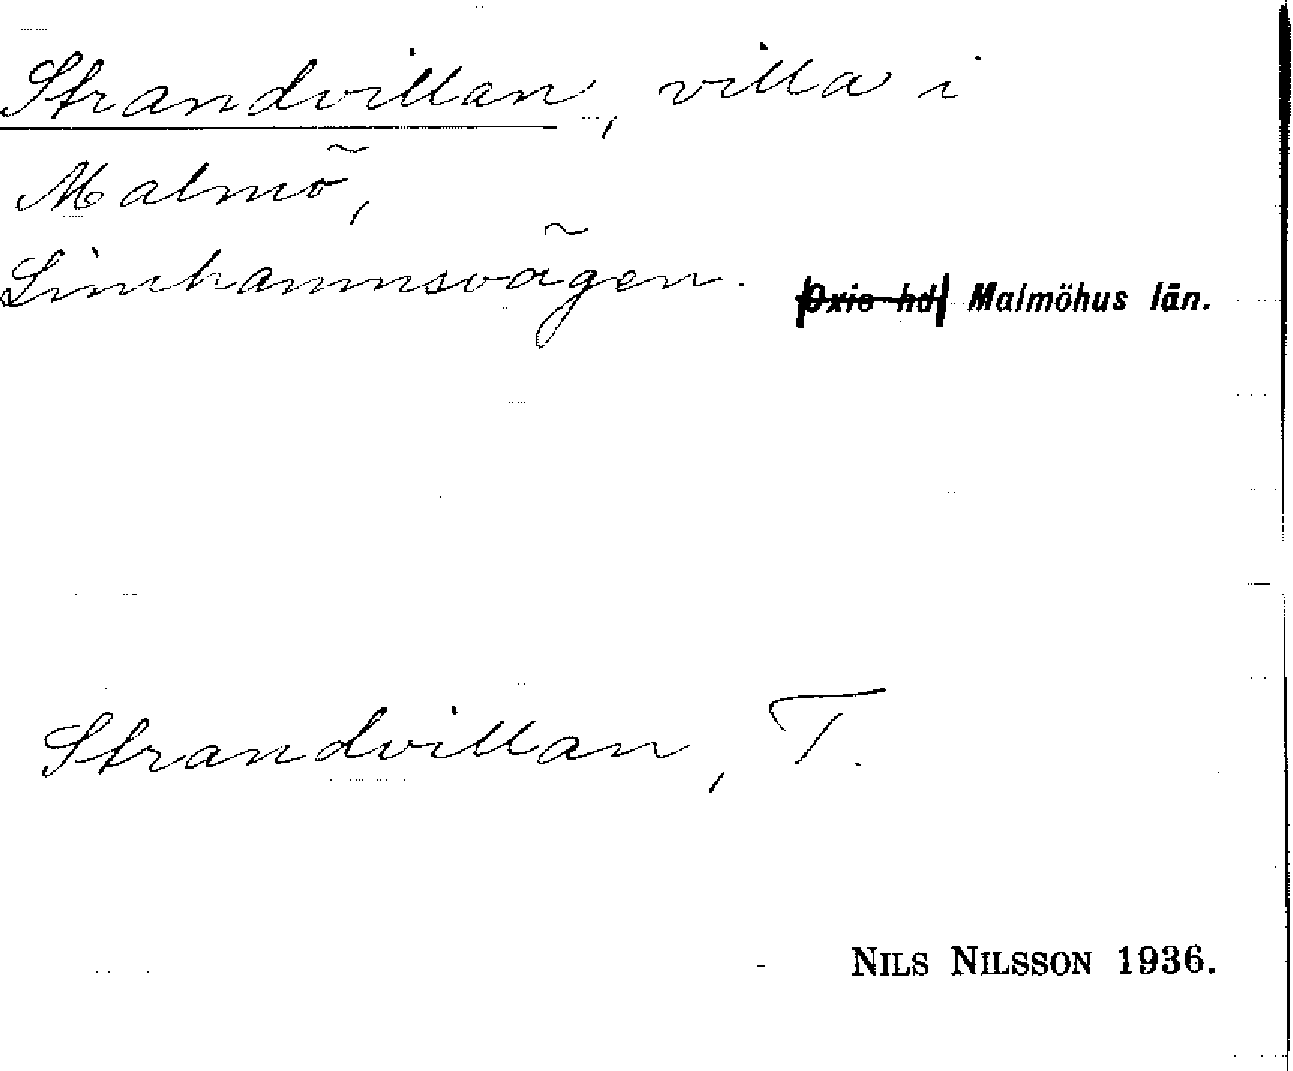 Strandvillan, villa i
Malmö,
Limhamnsvägen.
Oxie hd Malmöhus län.
Strandvillan, T.
NILS NILSSON 1936.